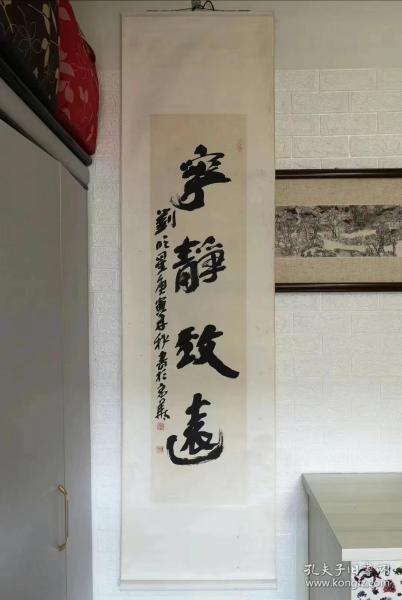 寧靜致遠
劉
庚寅年秋書於
孔夫子旧书网
www.kongfz.com